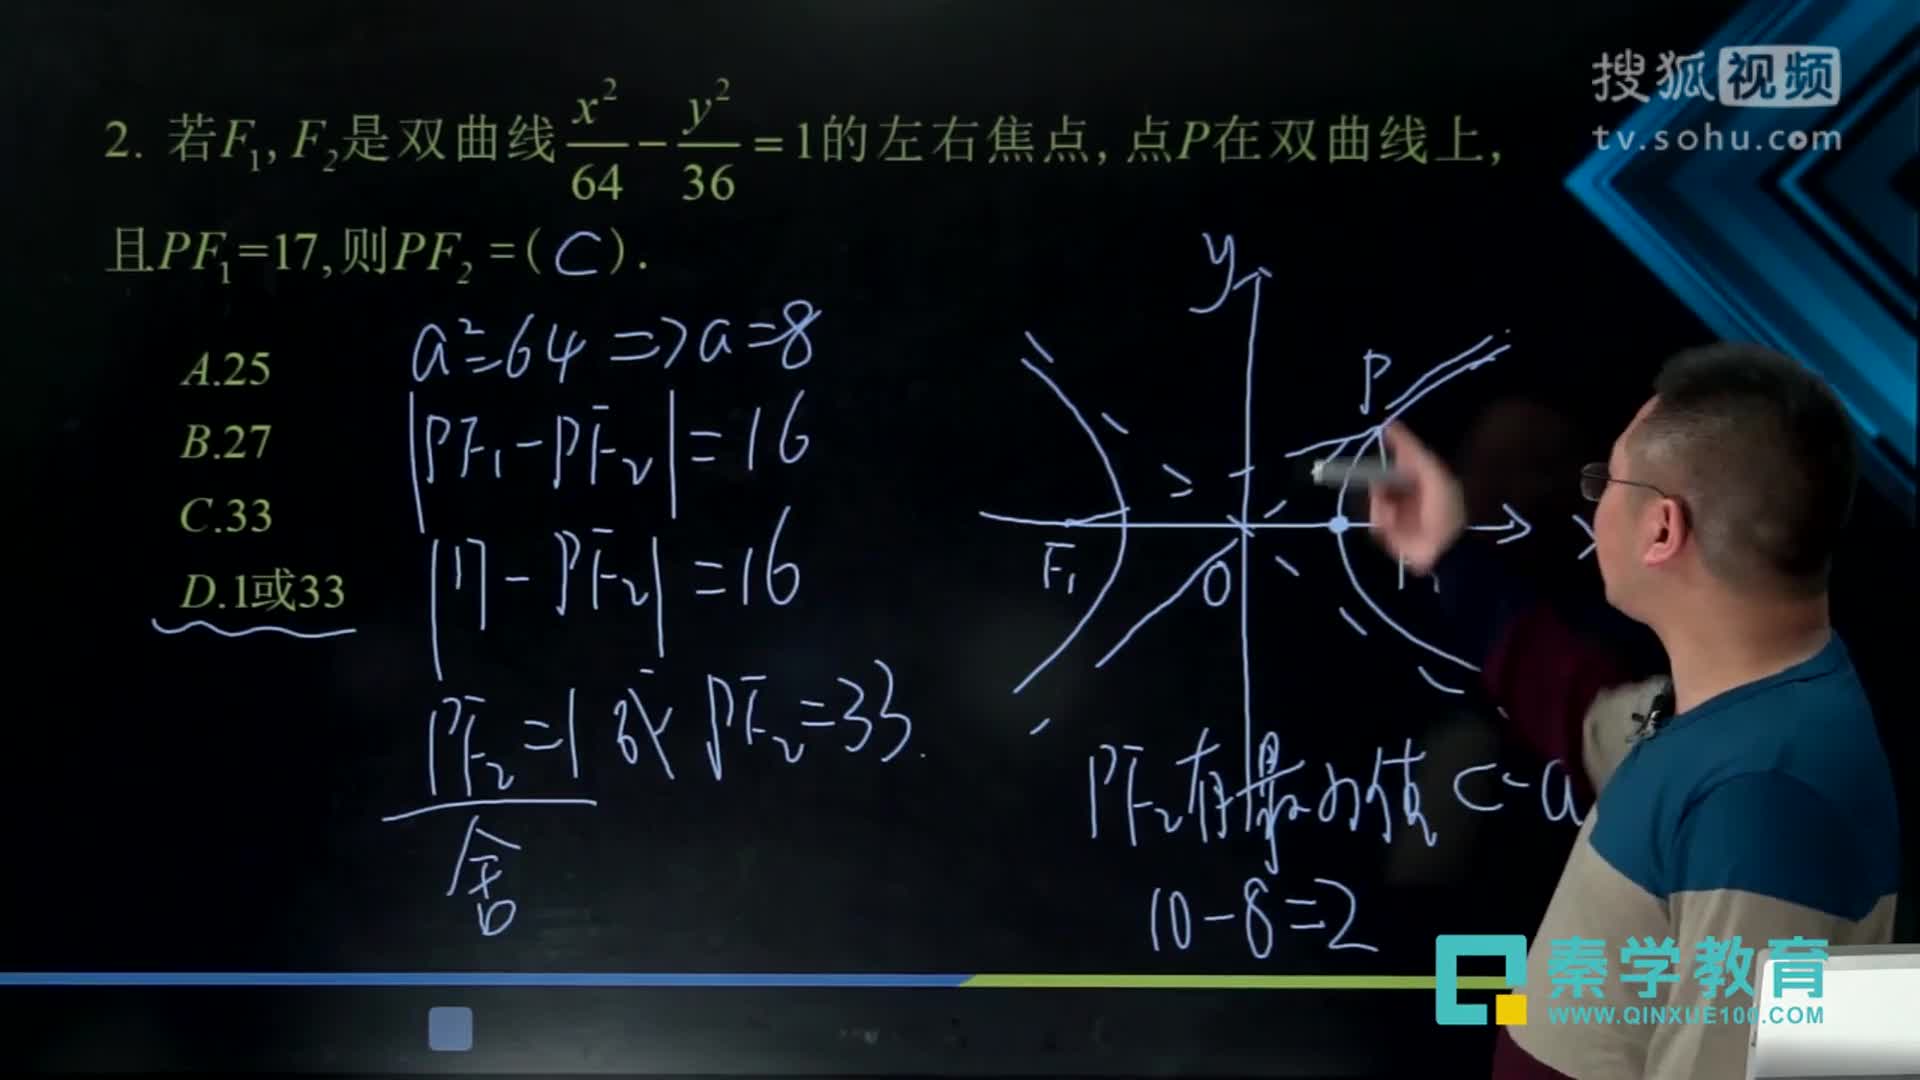 搜狐视频
tv.sohu.com
2. 若F₁, F₂是双曲线x²/64 - y²/36 = 1的左右焦点, 点P在双曲线上,
且PF₁=17, 则PF₂ = ( C ).
A.25
B.27
C.33
D.1或33
a²=64 => a=8
|PF₁-PF₂| = 16
|17-PF₂| = 16
PF₂=1 或 PF₂=33.
舍
y
P
F₁
O
PF₂有最小值 c-a
10-8=2
秦学教育
WWW.QINXUE100.COM